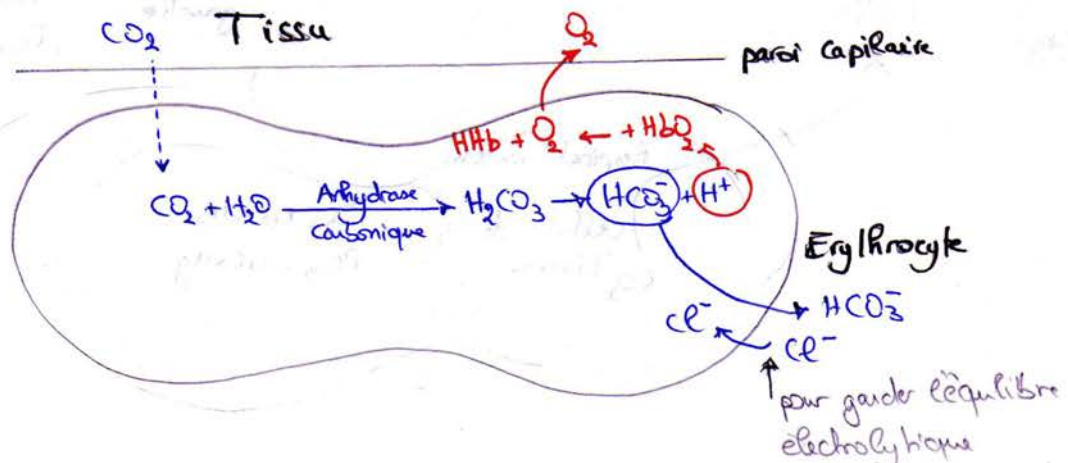 CO₂ Tissu O₂
paroi capillaire
HHb + O₂ ← + HbO₂
CO₂ + H₂O Anhydrase Carbonique → H₂CO₃ → HCO₃⁻ + H⁺
Erythrocyte
HCO₃⁻
Cl⁻
Cl⁻
pour garder l'équilibre
électrolytique